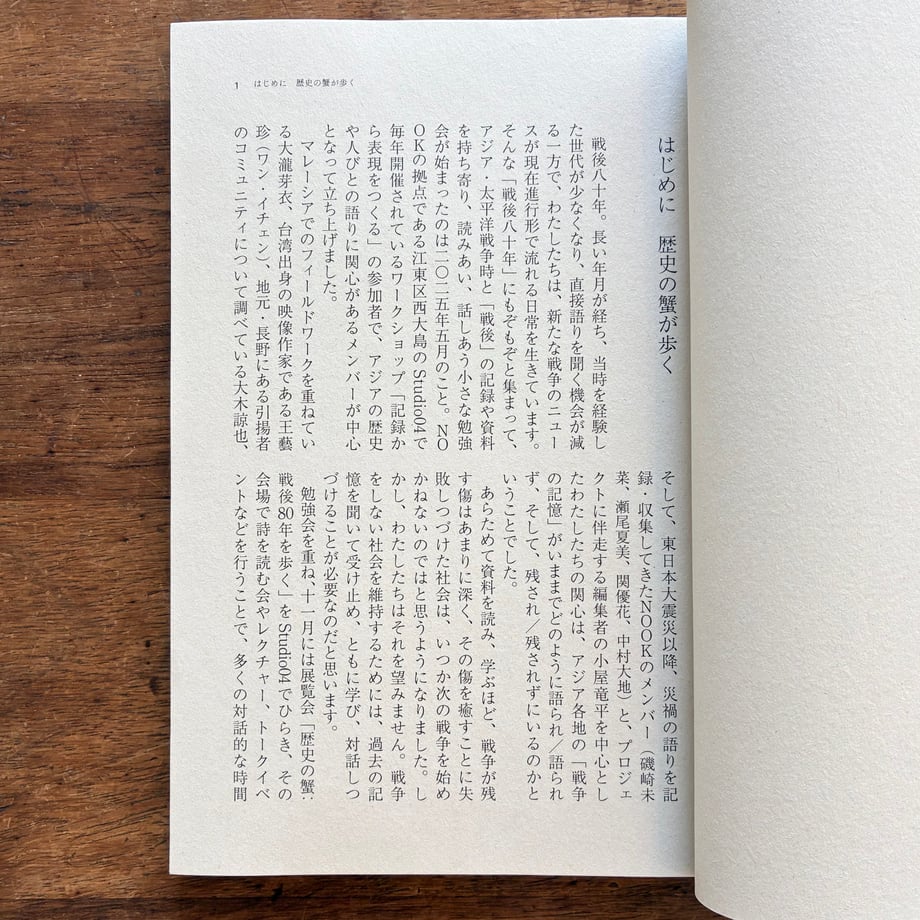 1 はじめに 歴史の蟹が歩く
はじめに 歴史の蟹が歩く
戦後八十年。長い年月が経ち、当時を経験し
た世代が少なくなり、直接語りを聞く機会が減
る一方で、わたしたちは、新たな戦争のニュー
スが現在進行形で流れる日常を生きています。
そんな「戦後八十年」にもぞもぞと集まって、
アジア・太平洋戦争時と「戦後」の記録や資料
を持ち寄り、読みあい、話しあう小さな勉強
会が始まったのは二〇二五年五月のこと。NO
OKの拠点である江東区西大島のStudio04で
毎年開催されているワークショップ「記録か
ら表現をつくる」の参加者で、アジアの歴史
や人びとの語りに関心があるメンバーが中心
となって立ち上げました。
マレーシアでのフィールドワークを重ねてい
る大瀧芽衣、台湾出身の映像作家である王藝
珍（ワン・イチェン）、地元・長野にある引揚者
のコミュニティについて調べている大木諒也、
そして、東日本大震災以降、災禍の語りを記
録・収集してきたNOOKのメンバー（磯崎未
菜、瀬尾夏美、関優花、中村大地）と、プロジェ
クトに伴走する編集者の小屋竜平を中心とし
たわたしたちの関心は、アジア各地の「戦争
の記憶」がいままでどのように語られ／語られ
ず、そして、残され／残されずにいるのかと
いうことでした。
あらためて資料を読み、学ぶほど、戦争が残
す傷はあまりに深く、その傷を癒すことに失
敗しつづけた社会は、いつか次の戦争を始め
かねないのではと思うようになりました。し
かし、わたしたちはそれを望みません。戦争
をしない社会を維持するためには、過去の記
憶を聞いて受け止め、ともに学び、対話しつ
づけることが必要なのだと思います。
勉強会を重ね、十一月には展覧会「歴史の蟹：
戦後80年を歩く」をStudio04でひらき、その
会場で詩を読む会やレクチャー、トークイベ
ントなどを行うことで、多くの対話的な時間